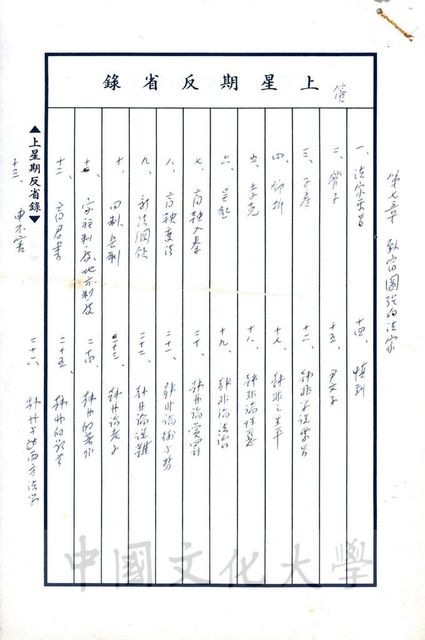 上星期反省錄
管
第七章 致富圖強的法家
一、法家要旨
二、管子
三、子產
四、鄧析
五、李克
六、吳起
七、商鞅入秦
八、商鞅變法
九、新法綱領
十、田制兵制
十一、家族制度、地方制度
十二、商君書
十三、申不害
十四、慎到
十五、尹文子
十六、韓非子說要旨
十七、韓非之生平
十八、韓非論性惡
十九、韓非論法治
二十、韓非論賞罰
二十一、韓非論
二十二、韓非論說難
二十三、韓非論老子
二十四、韓非的著作
二十五、韓非的
二十六、韓非子與西方法學
▲上星期反省錄▼
中國文化大學